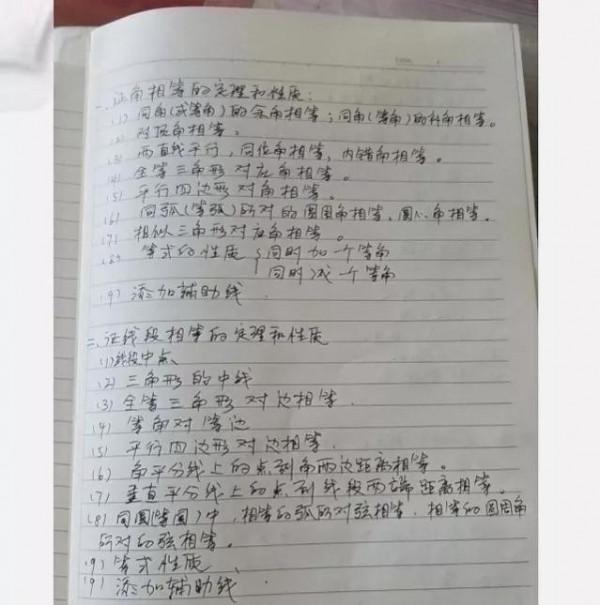 一、证角相等的定理和性质:
(1) 同角(或等角)的余角相等；同角(等角)的补角相等。
(2) 对顶角相等。
(3) 两直线平行，同位角相等，内错角相等。
(4) 全等三角形对应角相等。
(5) 平行四边形对角相等。
(6) 同弧(等弧)所对的圆周角相等，圆心角相等。
(7) 相似三角形对应角相等。
(8) 等式的性质{同时加一个等角
同时减一个等角
(9) 添加辅助线
二、证线段相等的定理和性质
(1) 线段中点、
(2) 三角形的中线
(3) 全等三角形对边相等.
(4) 等角对等边
(5) 平行四边形对边相等.
(6) 角平分线上的点到角两边距离相等。
(7) 垂直平分线上的点到线段两端距离相等.
(8) 同圆(等圆)中，相等的弧所对弦相等，相等的圆周角
所对的弦相等。
(9) 等式性质、
(9) 添加辅助线